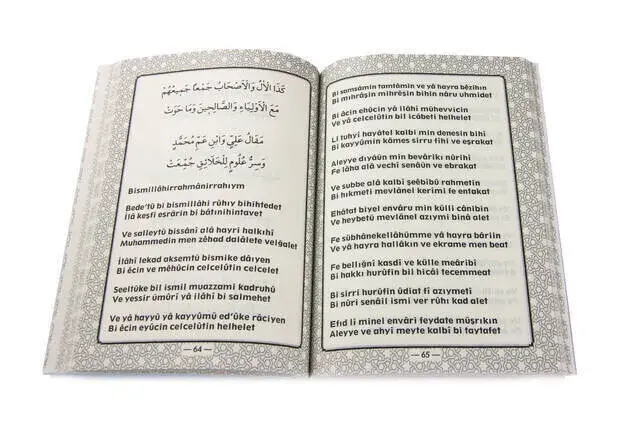 كَذَا الْآلُ وَالْاَصْحَابُ جَمْعًا جَمِيعُهُمْ
مَعَ الْاَوْلِيَاءِ وَالصَّالِحِينَ وَمَا حَوَتْ
مَقَالُ عَلِيٍّ وَابْنِ عَمِّ مُحَمَّدٍ
وَسِرُّ عُلُومٍ لِلْخَلَائِقِ جُمِّعَتْ
Bismillâhirrahmânirrahıym
Bede'tü bi bismillâhi rûhıy bihihtedet
İlâ keşfi esrârin bi bâtınihintavet
Ve salleytü bissânî alâ hayri halkıhî
Muhammedin men zêhad dalâlete velğalet
İlâhî lekad aksemtü bismike dâıyen
Bi êcin ve mêhûcin celcelûtin celcelet
Seeltüke bil ismil muazzami kadruhû
Ve yessir ümûrî yâ ilâhî bi salmehet
Ve yâ hayyü yâ kayyûmü ed'ûke râciyen
Bi êcin eyûcin celcelûtin helhelet
— 64 —
Bi samsâmin tamtâmin ve yâ hayra bêzihın
Bi mıhrâşin mihrêşin bihin nâru uhmidet
Bi âcin ehûcin yâ ilâhî mühevvicin
Ve yâ celcelûtin bil icâbeti helhelet
Li tuhyî hayâtel kalbi min denesin bihî
Bi kayyûmin kâmes sirru fîhi ve eşrakat
Aleyye dıyâün min bevârikı nûrihî
Fe lâha alâ vechî senâün ve ebrakat
Ve subbe alâ kalbî şeêbîbü rahmetin
Bi hıkmeti mevlânel kerîmi fe entakat
Ehâtat biyel envâru min külli cânibin
Ve heybetü mevlânel azıymi binâ alet
Fe sübhânekellâhümme yâ hayra bâriin
Ve yâ hayra hallâkın ve ekrame men beat
Fe bellığnî kasdî ve külle meâribî
Bi hakkı hurûfin bil hicâi tecemmeat
Bi sirri hurûfin ûdiat fî azıymetî
Bi nûri senâil ismi ver rûhı kad alet
Efıd lî minel envâri feydate müşrikın
Aleyye ve ahyî meyte kalbî bi taytafet
— 65 —